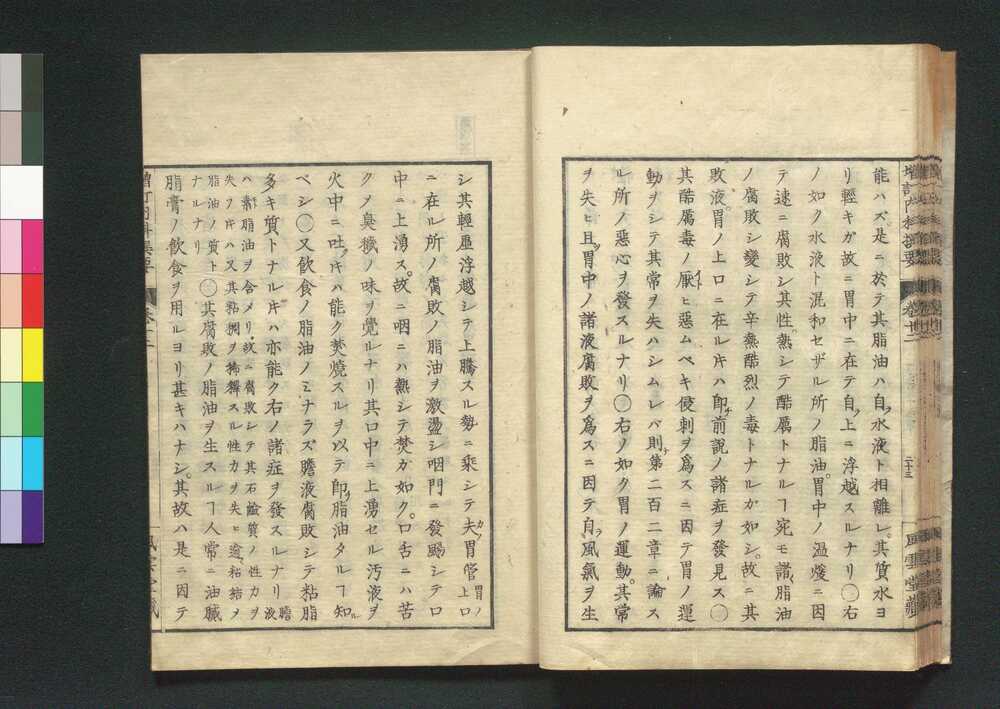 増訂内科撰要
卷廿二
二十三
風雲堂藏
能ハズ。是ニ於テ其脂油ハ自ラ水液ト相離レ。其質水ヨ
リ輕キガ故ニ胃中ニ在テ自ラ上ニ浮越スルナリ〇右
ノ如ク水液ト混和セザル所ノ脂油。胃中ノ温煖ニ因
テ速ニ腐敗シ其性熱シテ酷厲トナルヿ宛モ諸脂油
ノ腐敗シ變シテ辛熱酷烈ノ毒トナルガ如シ。故ニ其
敗液。胃ノ上口ニ在ル𪜈ハ即チ前説ノ諸症ヲ發見ス〇
其酷厲毒ノ厭ヒ惡ムベキ侵刺ヲ爲スニ因テ胃ノ運
動ヲシテ其常ヲ失ハシムレバ則チ第二百二章ニ論ス
ル所ノ惡心ヲ發スルナリ〇右ノ如ク胃ノ運動。其常
ヲ失ヒ且ツ胃中ノ諸液腐敗ヲ爲スニ因テ自ラ風氣ヲ生
シ其輕虚浮越シテ上騰スル勢ニ乘シテ夫ノ胃管胃ノ上口
ニ在ル所ノ腐敗ノ脂油ヲ激盪シ咽門ニ發颺シテ口
中ニ上湧ス。故ニ咽ニハ熱シテ焚ガ如ク。口舌ニハ苦
クノ臭穢ノ味ヲ覺ルナリ其口中ニ上湧セル汚液ヲ
火中ニ吐ケ𪜈ハ能ク焚燒スルヲ以テ即チ脂油タルヿ知ル
ベシ〇又飲食ノ脂油ノミナラズ膽液腐敗シテ粘脂
多キ質トナル𪜈ハ亦能ク右ノ諸症ヲ發スルナリ膽液
ハ素脂油ヲ含メリ。故ニ腐敗シテ其石鹼質ノ性力ヲ
失フ𪜈ハ又其粘稠ヲ稀釋スル性力ヲ失ヒ遂ニ粘結ノ
脂油ノ質ト
ナルナリ〇其腐敗ノ脂油ヲ生スルヿ人常ニ油膩
脂膏ノ飲食ヲ用ルヨリ甚キハナシ。其故ハ是ニ因テ